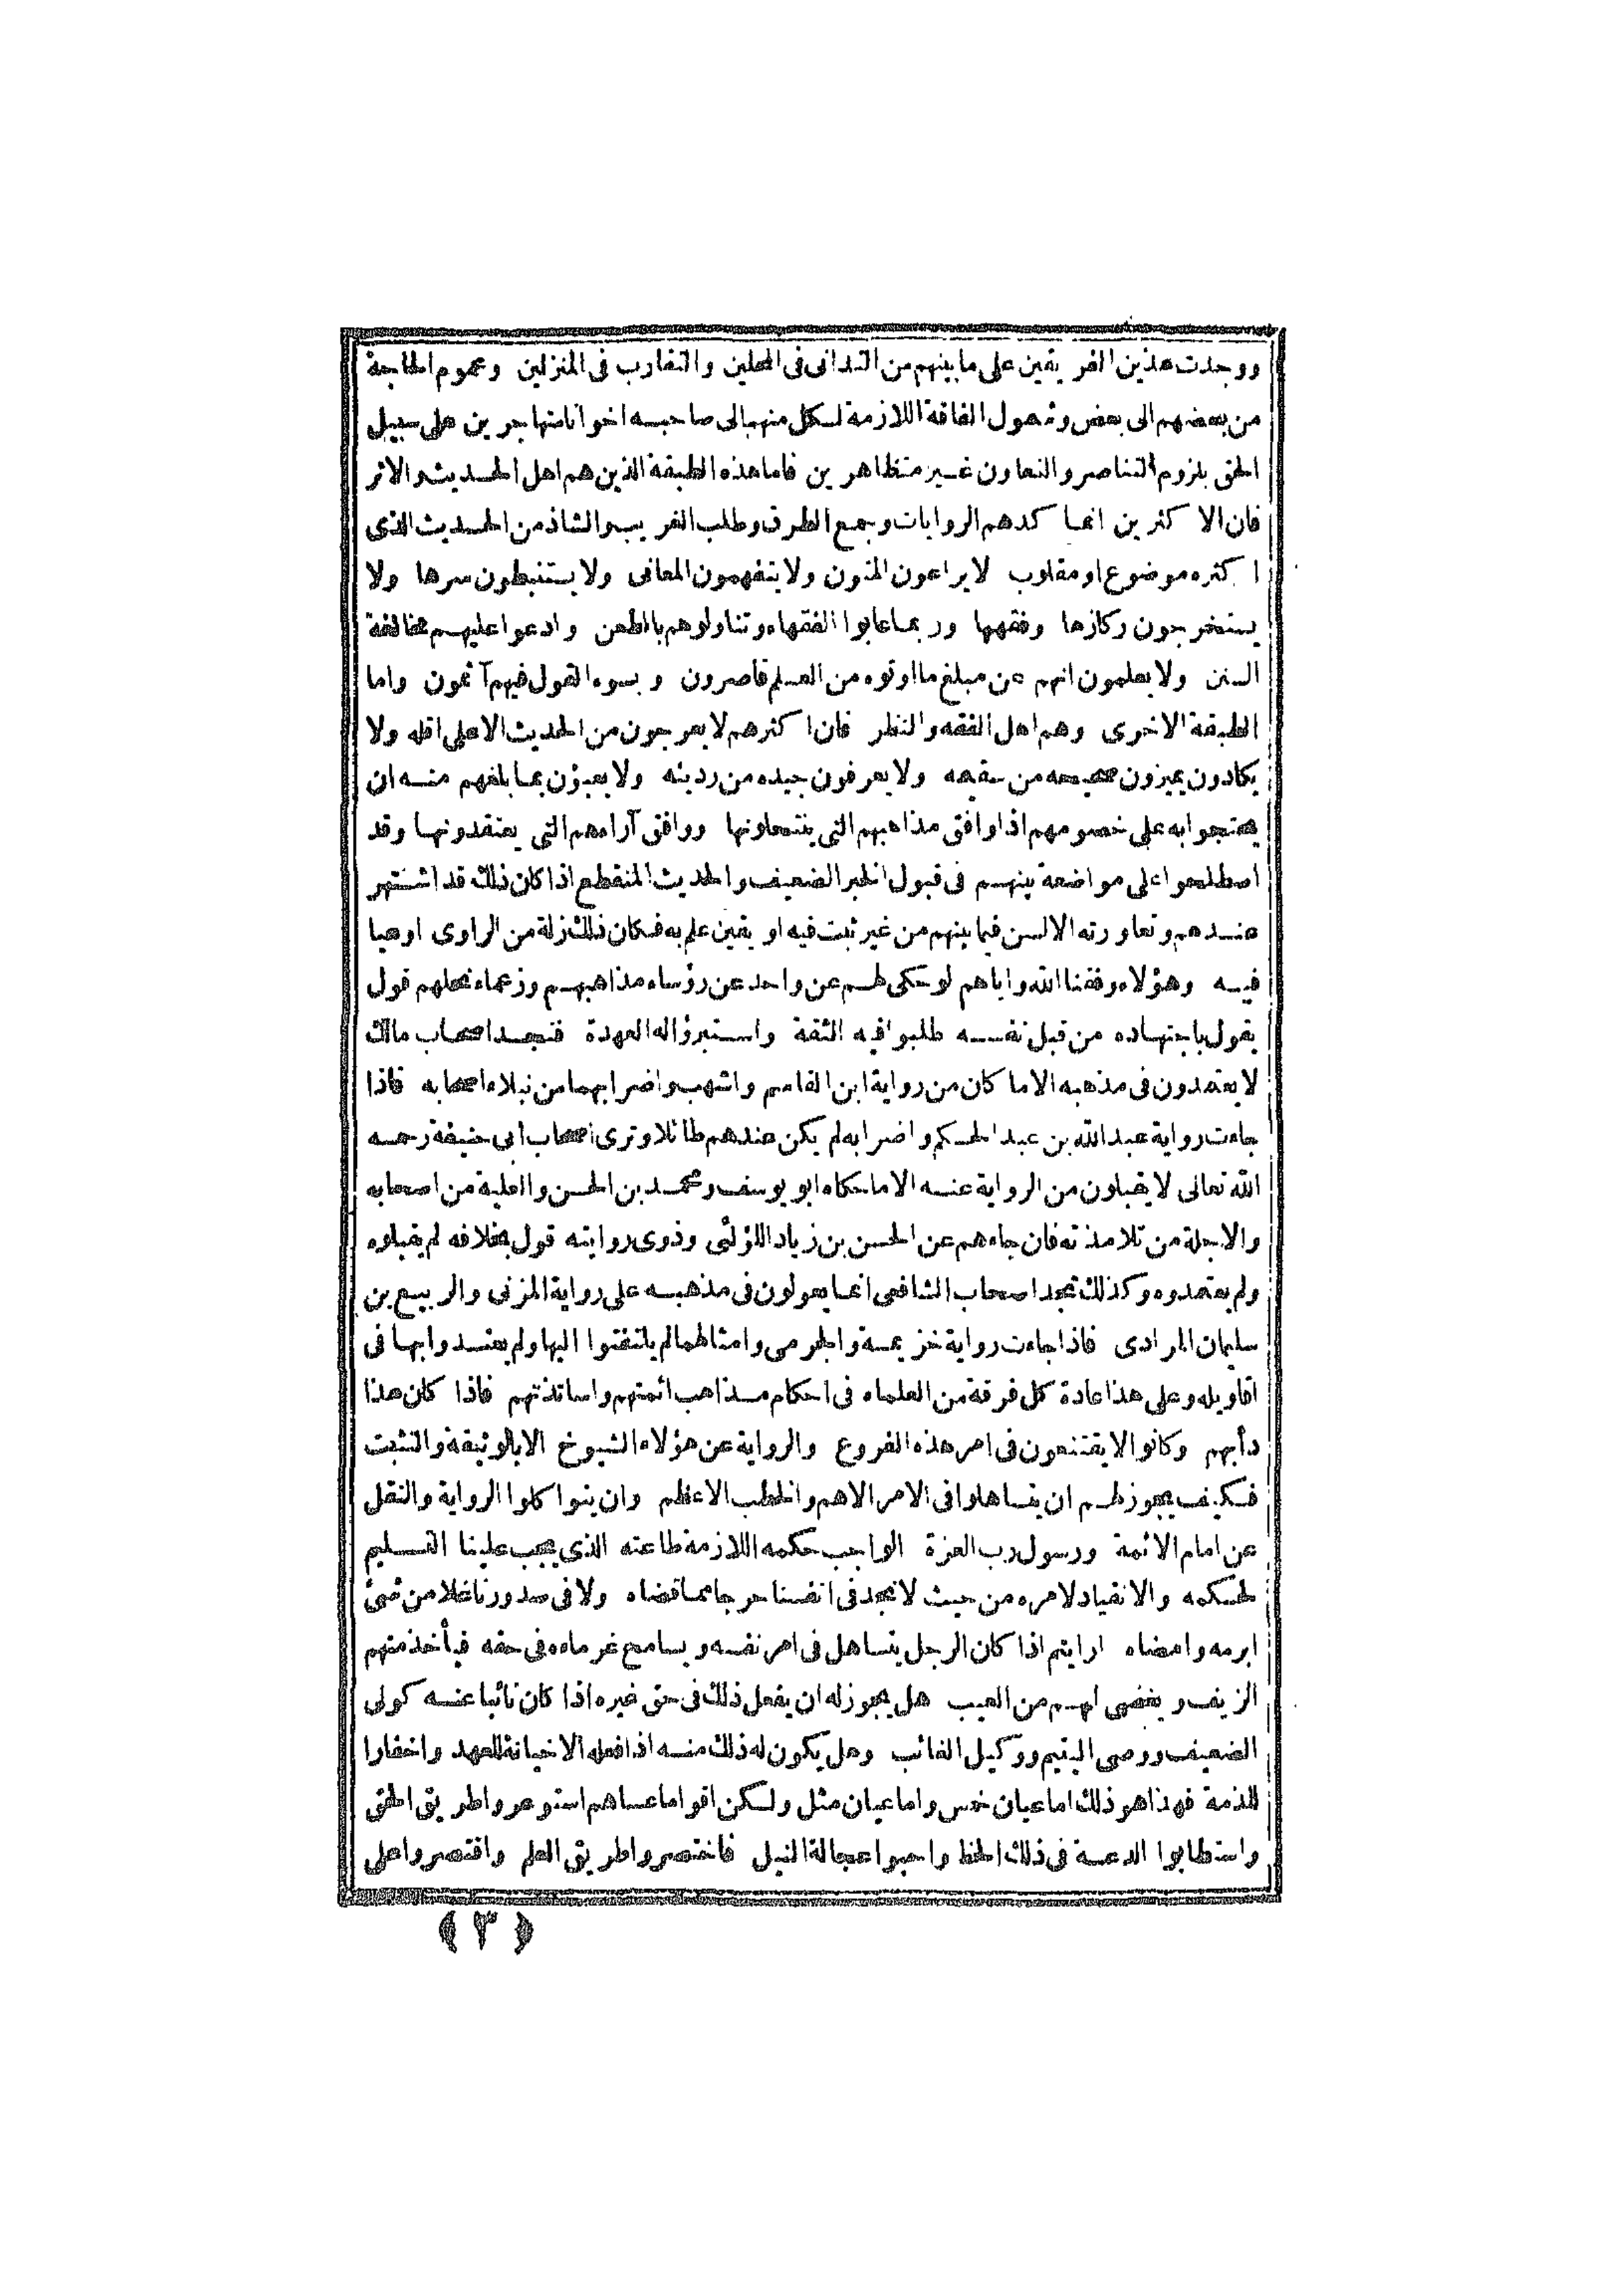 ووجدت هذين الفريقين على ما بينهم من التدانى فى المحلين والتقارب فى المنزلين وعموم الحاجة
من بعضهم الى بعض وشمول الفاقة اللازمة لكل منهما الى صاحبه اخوانا متهاجرين على سبيل
الحق بلزوم التناصر والتعاون غير متظاهرين فاما هذه الطبقة الذين هم اهل الحديث والاثر
فان الاكثرين انما كدهم الروايات وجمع الطرق وطلب الغريب والشاذ من الحديث الذى
اكثره موضوع او مقلوب لا يراعون المتون ولا يتفهمون المعانى ولا يستنبطون سرها ولا
يستخرجون ركازها وفقهها وربما عابوا الفقهاء وتناولوهم بالطعن وادعوا عليهم مخالفة
السنن ولا يعلمون انهم عن مبلغ ما اوتوه من العلم قاصرون وبسوء القول فيهم آثمون واما
الطبقة الاخرى وهم اهل الفقه والنظر فان اكثرهم لا يعرجون من الحديث الا على اقله ولا
يكادون يميزون صحيحه من سقيمه ولا يعرفون جيده من رديئه ولا يعبؤن بما بلغهم منه ان
يحتجوا به على خصومهم اذا وافق مذاهبهم التى ينتحلونها ووافق آراءهم التى يعتقدونها وقد
اصطلحوا على مواضعة بينهم فى قبول الخبر الضعيف والحديث المنقطع اذا كان ذلك قد اشتهر
عندهم وتعاورته الالسن فيما بينهم من غير ثبت فيه او يقين علم به فكان ذلك زلة من الراوى او عيا
فيه وهؤلاء وفقنا الله واياهم لو حكى لهم عن واحد عن رؤساء مذاهبهم وزعماء نحلهم قول
يقول باجتهاده من قبل نفسه طلبوا فيه الثقة واستبرؤا له العهدة فتجد اصحاب مالك
لا يعتمدون فى مذهبه الا ما كان من رواية ابن القاسم واشهب واضرابهما من نبلاء اصحابه فاذا
جاءت رواية عبد الله بن عبد الحكم واضرابه لم يكن عندهم طائلا وترى اصحاب ابى حنيفة رحمه
الله تعالى لا يقبلون من الرواية عنه الا ما حكاه ابو يوسف ومحمد بن الحسن والعلية من اصحابه
والاجلة من تلامذته فان جاءهم عن الحسن بن زياد اللؤلئى وذوى روايته قول بخلافه لم يقبلوه
ولم يعتمدوه وكذلك تجد اصحاب الشافعى انما يعولون فى مذهبه على رواية المزنى والربيع بن
سليمان المرادى فاذا جاءت رواية خزيمة والجرمى وامثالهما لم يلتفتوا اليها ولم يعتدوا بها فى
اقاويله وعلى هذا عادة كل فرقة من العلماء فى احكام مذاهب ائمتهم واساتذتهم فاذا كان هذا
دأبهم وكانوا لا يقتنعون فى امر هذه الفروع والرواية عن هؤلاء الشيوخ الا بالوثيقة والتثبت
فكيف يجوز لهم ان يتساهلوا فى الامر الاهم والخطب الاعظم وان يتواكلوا الرواية والنقل
عن امام الائمة ورسول رب العزة الواجب حكمه اللازمة طاعته الذى يجب علينا التسليم
لحكمه والانقياد لامره من حيث لا نجد فى انفسنا حرجا مما قضاه ولا فى صدورنا غلا من شئ
ابرمه وامضاه ارايتم اذا كان الرجل يتساهل فى امر نفسه ويسامح غرماءه فى حقه فيأخذ منهم
الزيف ويغضى لهم من العيب هل يجوز له ان يفعل ذلك فى حق غيره اذا كان نائبا عنه كولى
الضعيف ووصى اليتيم ووكيل الغائب وهل يكون له ذلك منه اذا فعله الا خيانة للعهد واخفارا
للذمة فهذا هو ذلك اما عيان حس واما عيان مثل ولكن اقواما عساهم استوعروا طريق الحق
واستطابوا الدعة فى ذلك الحظ واحبوا عجالة النيل فاختصروا طريق العلم واقتصروا على
﴿ ٣ ﴾